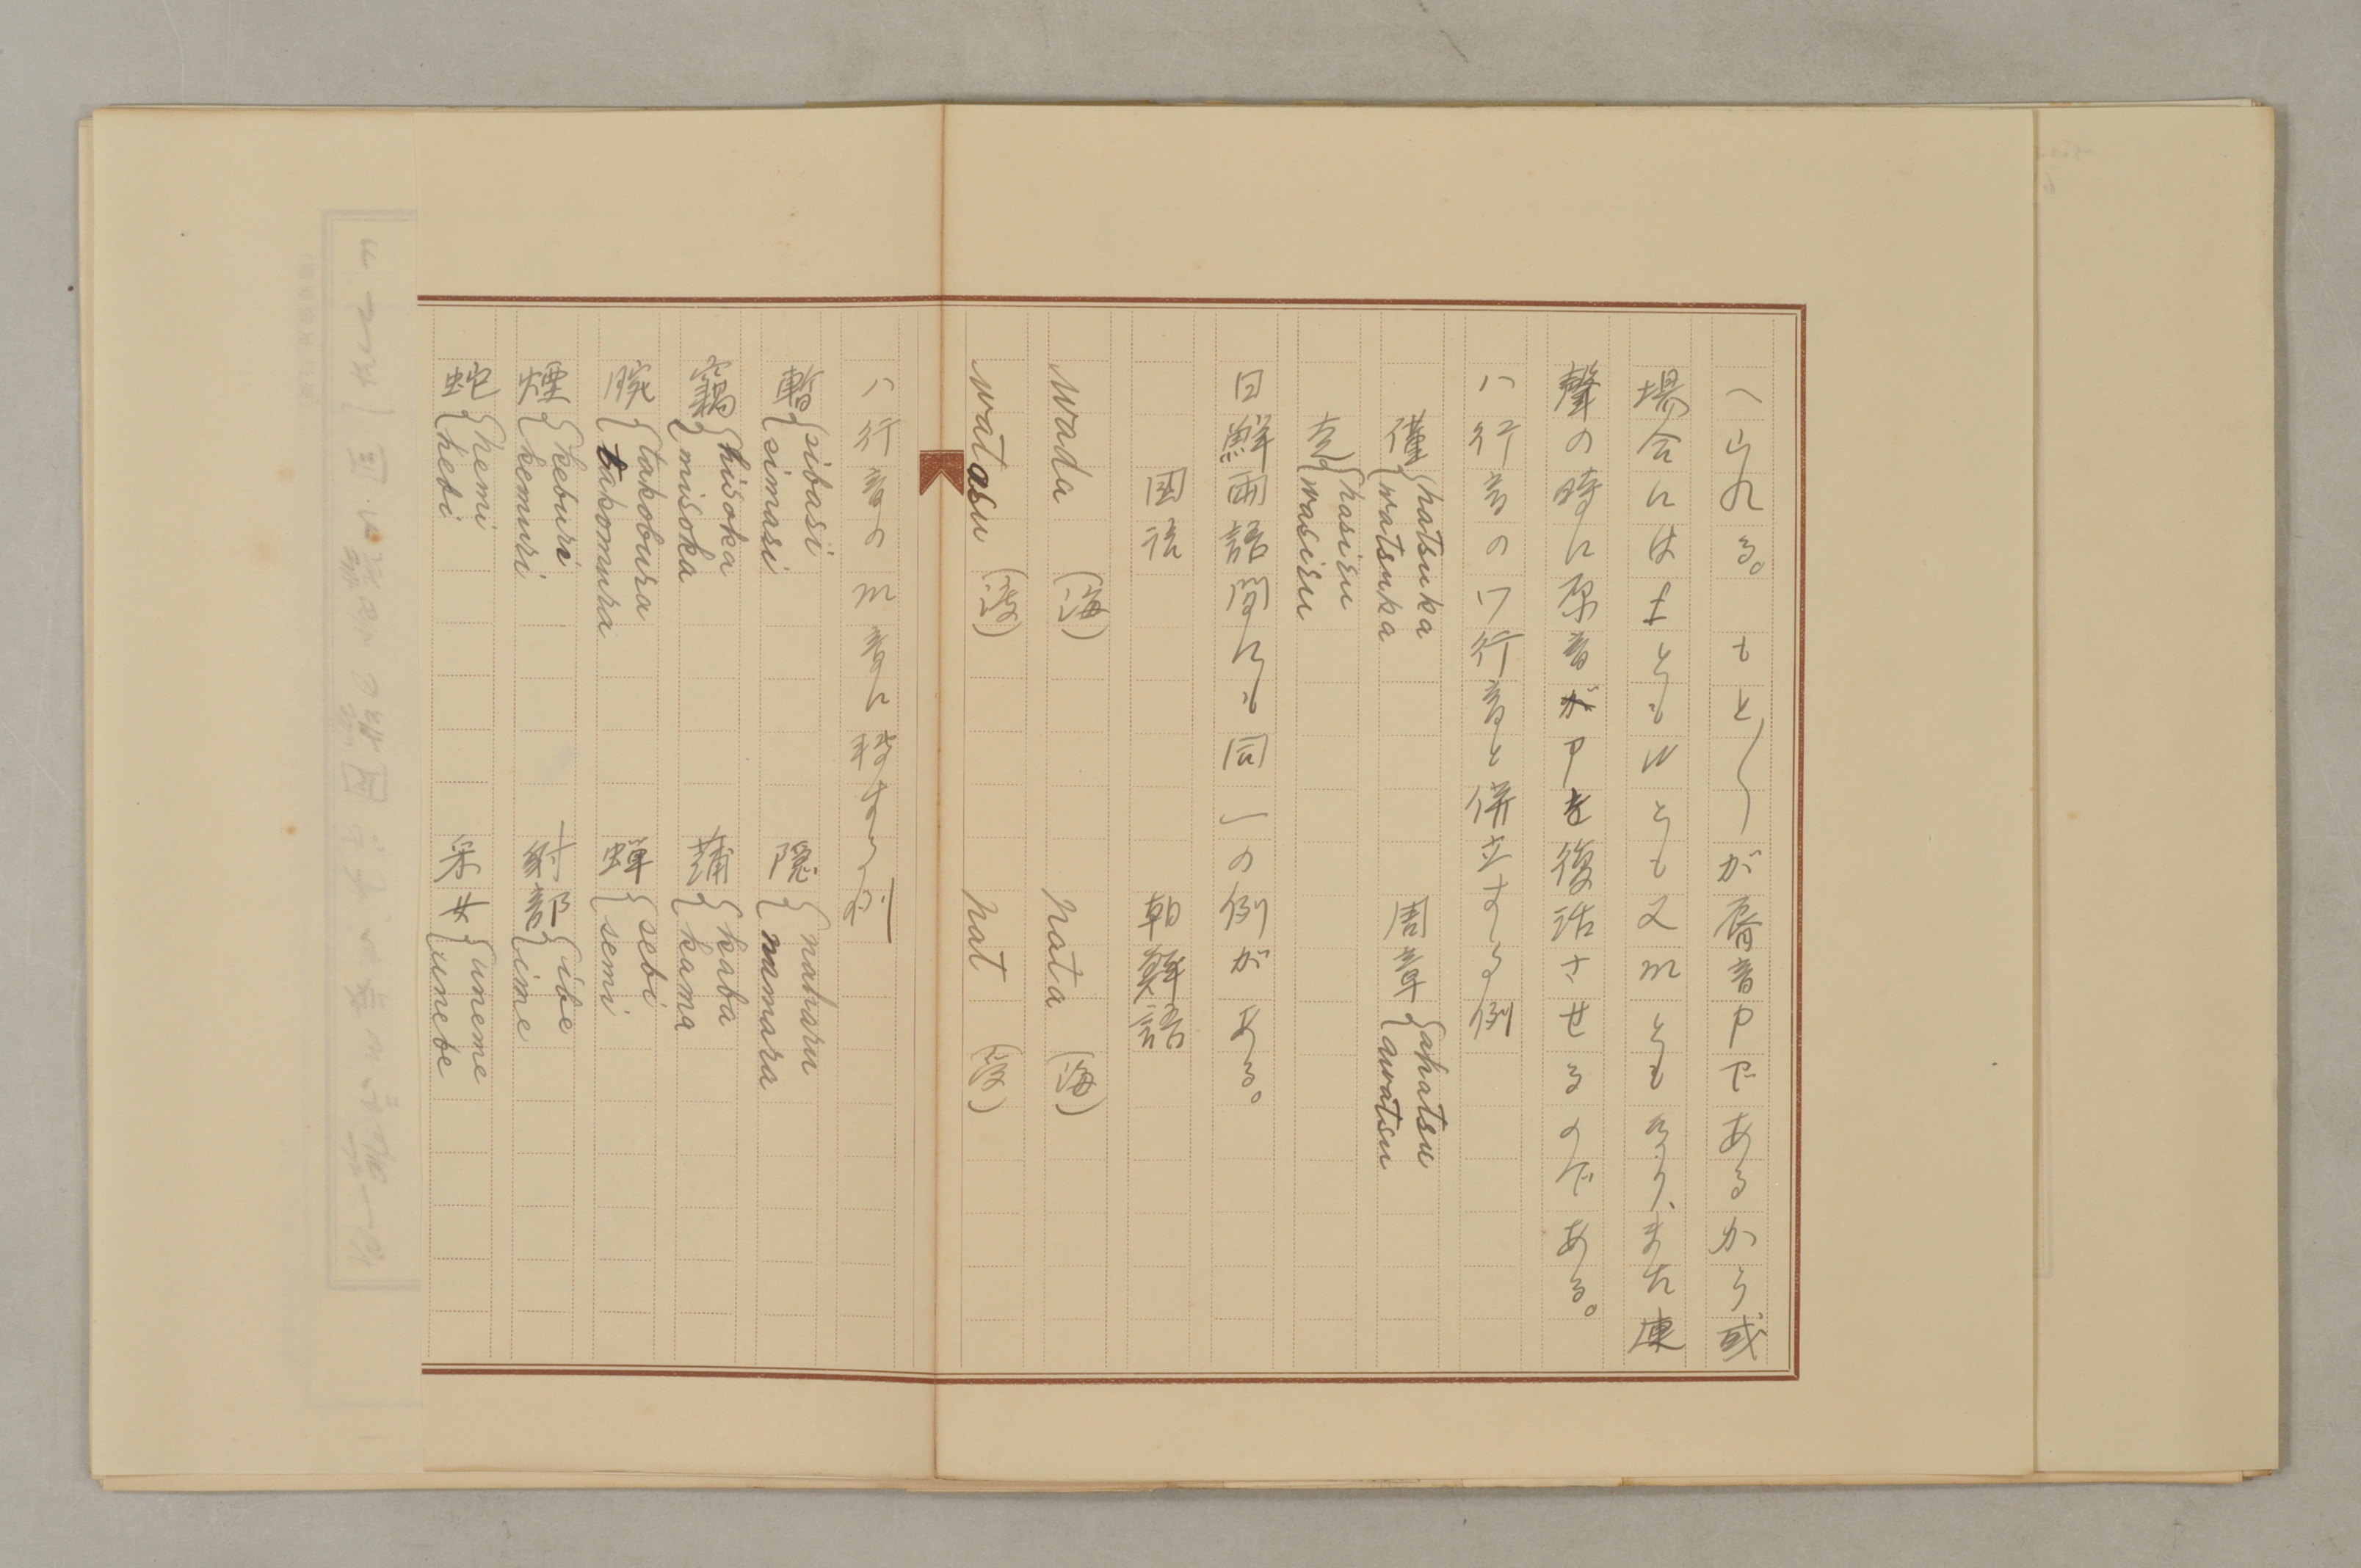 へられる。もと〱が脣音pであるから或
場合にはfともwとも又mともなり、また連
聲の時に原音がpを復活させるのである。
ハ行音のワ行音と併立する例
僅{hatsuka
watsuka
周章{ahatsu
awatsu
走{hasiru
wasiru
日鮮両語間にも同一の例がある。
国語 朝鮮語
wada (海) pata (海)
watasu (渡) pat (渡)
ハ行音のm音に轉する例
暫{sibasi
simasi
隠{naharu
namara
竊{hisoka
misoka
蒲{kaba
kama
腕{takobura
takomura
蝉{sebi
semi
煙{keburi
kemuri
射部{ibe
ime
蛇{hemi
hebi
采女{uneme
unebe